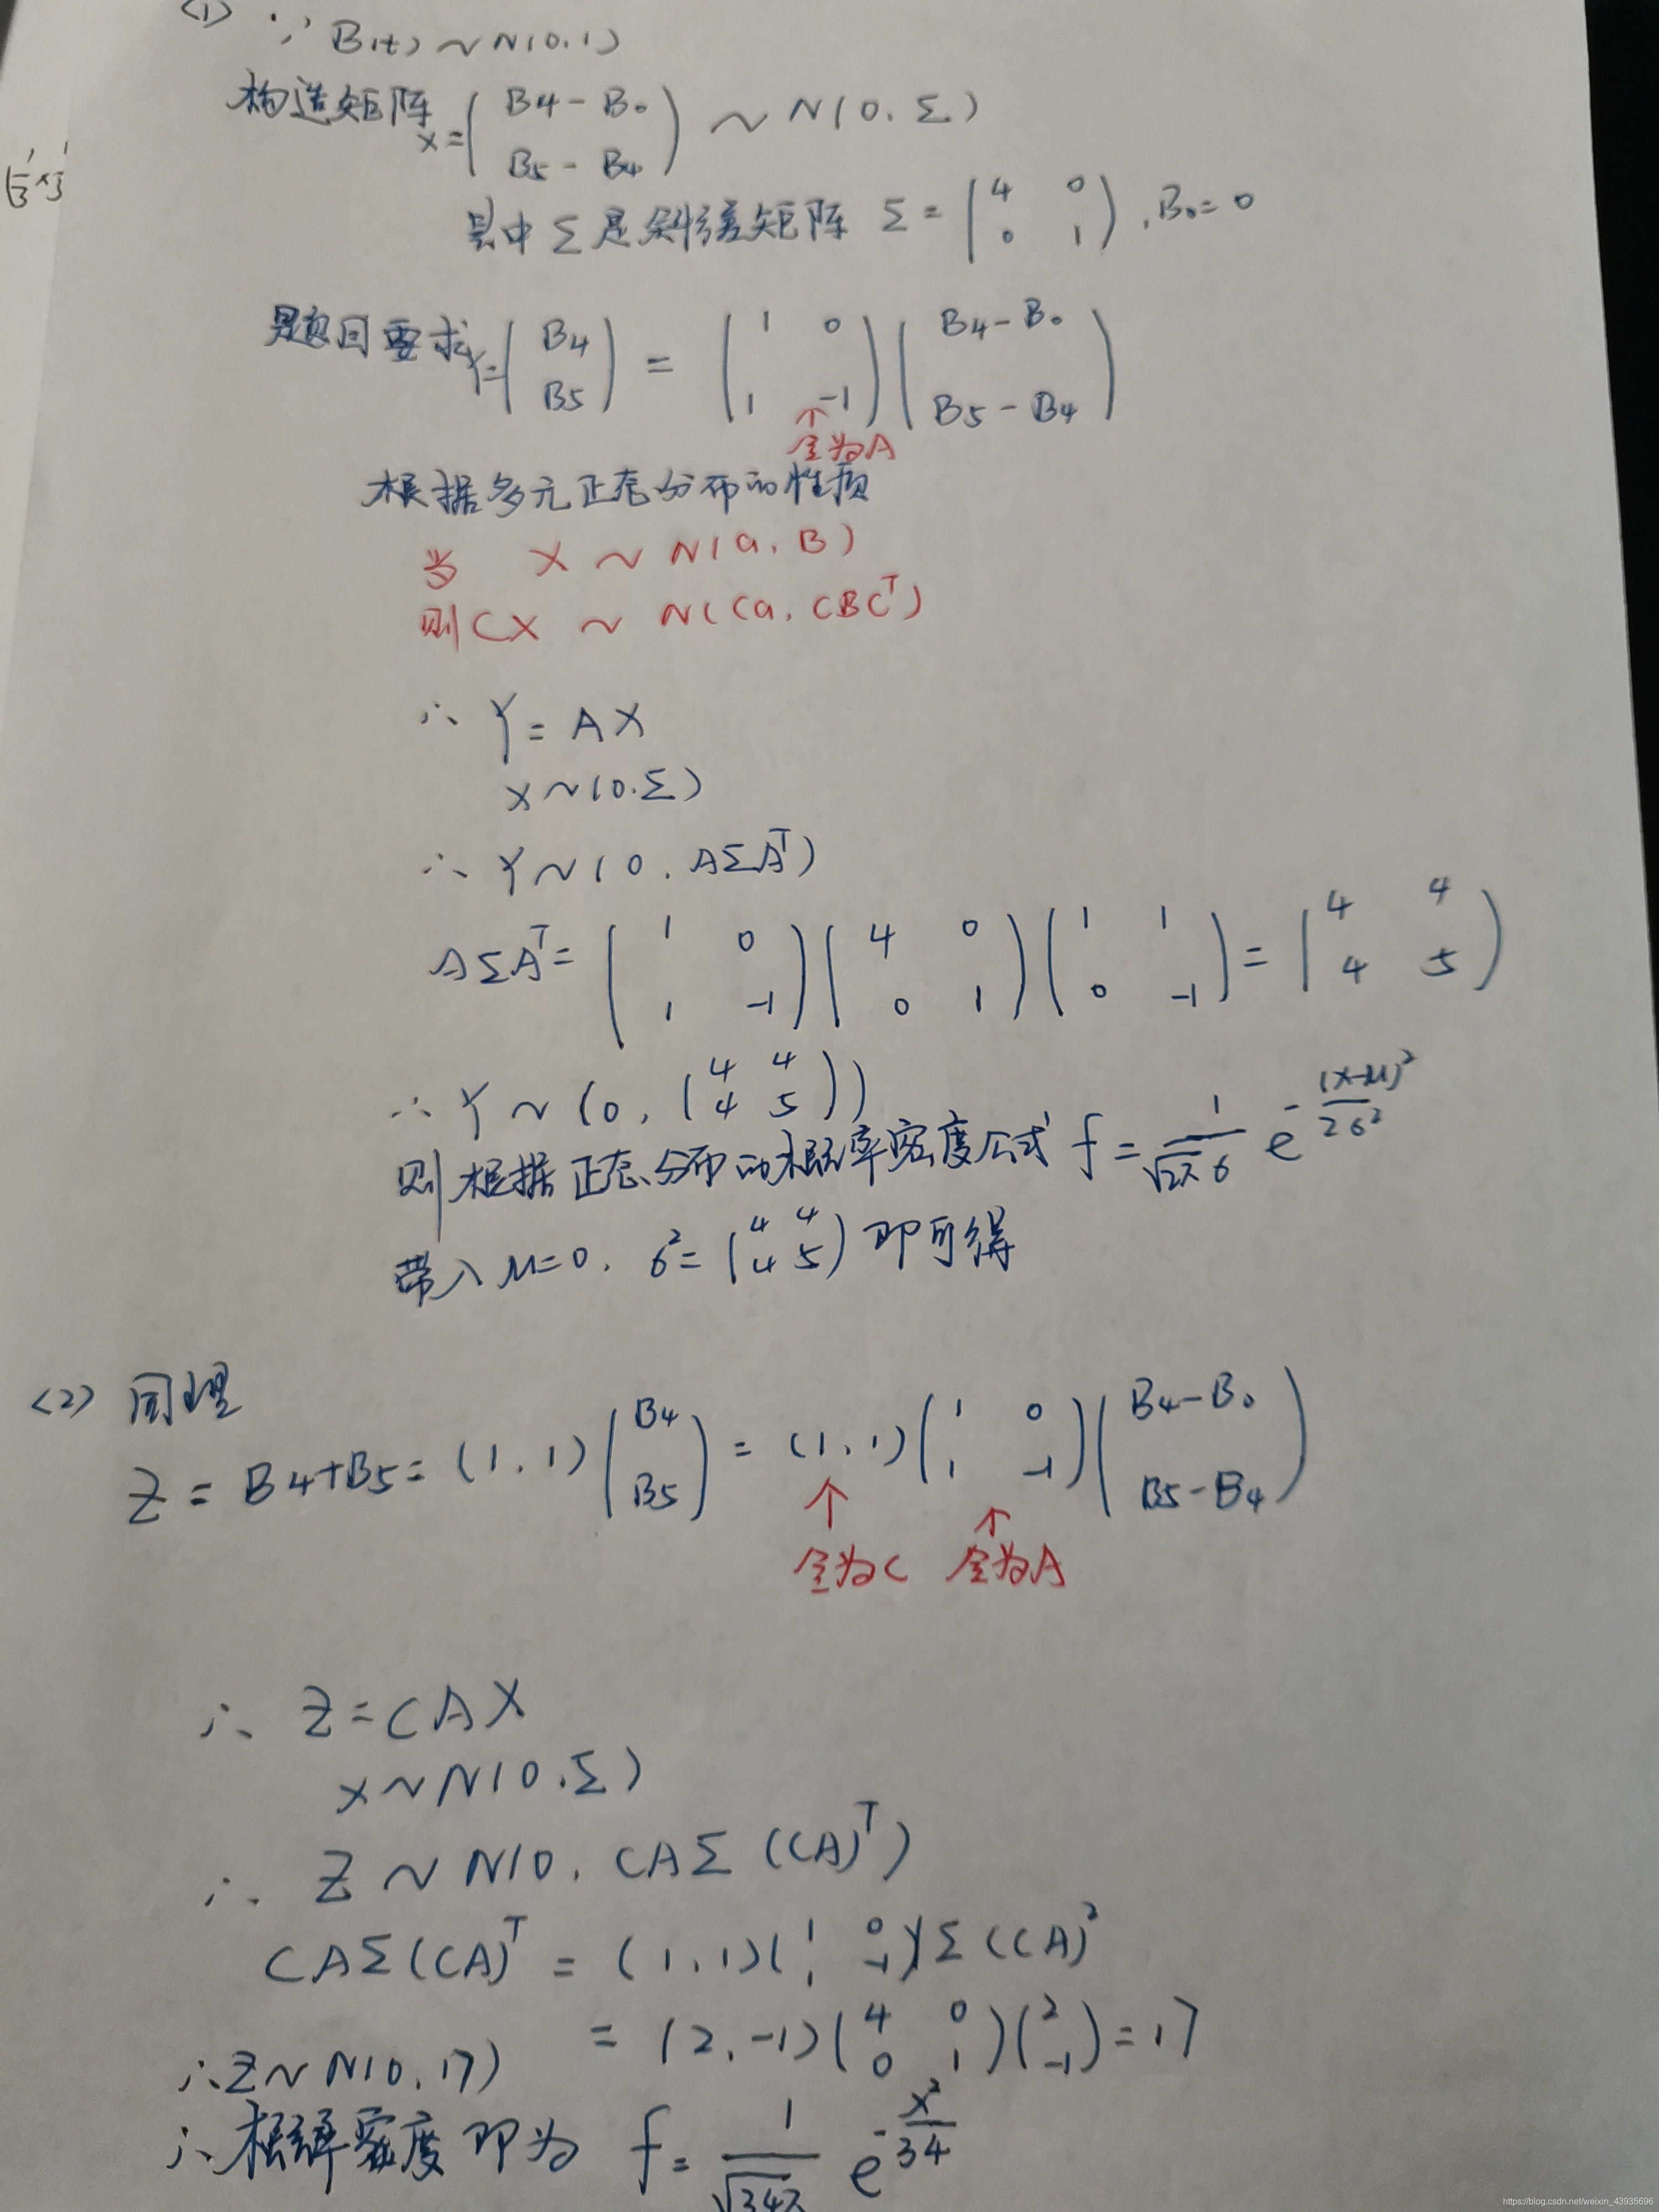 <1> ∵ B(t) ~ N(0.1)
构造矩阵 X = ( B4 - B0 ; B5 - B4 ) ~ N(0. Σ)
其中 Σ 是斜方差矩阵 Σ = ( 4 0 ; 0 1 ) , B0 = 0
题目要求 Y = ( B4 ; B5 ) = ( 1 0 ; 1 -1 ) ( B4 - B0 ; B5 - B4 )
↑
令为A
根据多元正态分布的性质
当 X ~ N(a, B)
则 CX ~ N(Ca, CBC^T)
∴ Y = AX
X ~ (0.Σ)
∴ Y ~ (0, AΣA^T)
AΣA^T = ( 1 0 ; 1 -1 ) ( 4 0 ; 0 1 ) ( 1 1 ; 0 -1 ) = ( 4 4 ; 4 5 )
∴ Y ~ (0, ( 4 4 ; 4 5 ))
则根据正态分布的概率密度公式 f = 1/(√2π σ) e^{-(x-μ)²/2σ²}
带入 μ=0. σ² = ( 4 4 ; 4 5 ) 即可得
<2> 同理
Z = B4+B5 = (1, 1) ( B4 ; B5 ) = (1, 1) ( 1 0 ; 1 -1 ) ( B4 - B0 ; B5 - B4 )
↑ ↑
令为C 令为A
∴ Z = CAX
X ~ N(0.Σ)
∴ Z ~ N(0, CAΣ(CA)^T)
CAΣ(CA)^T = (1, 1) ( 1 0 ; 1 -1 ) Σ (CA)²
= (2, -1) ( 4 0 ; 0 1 ) ( 2 ; -1 ) = 17
∴ Z ~ N(0, 17)
∴ 概率密度即为 f = 1/√34π e^{-x²/34}
https://blog.csdn.net/weixin_43935696